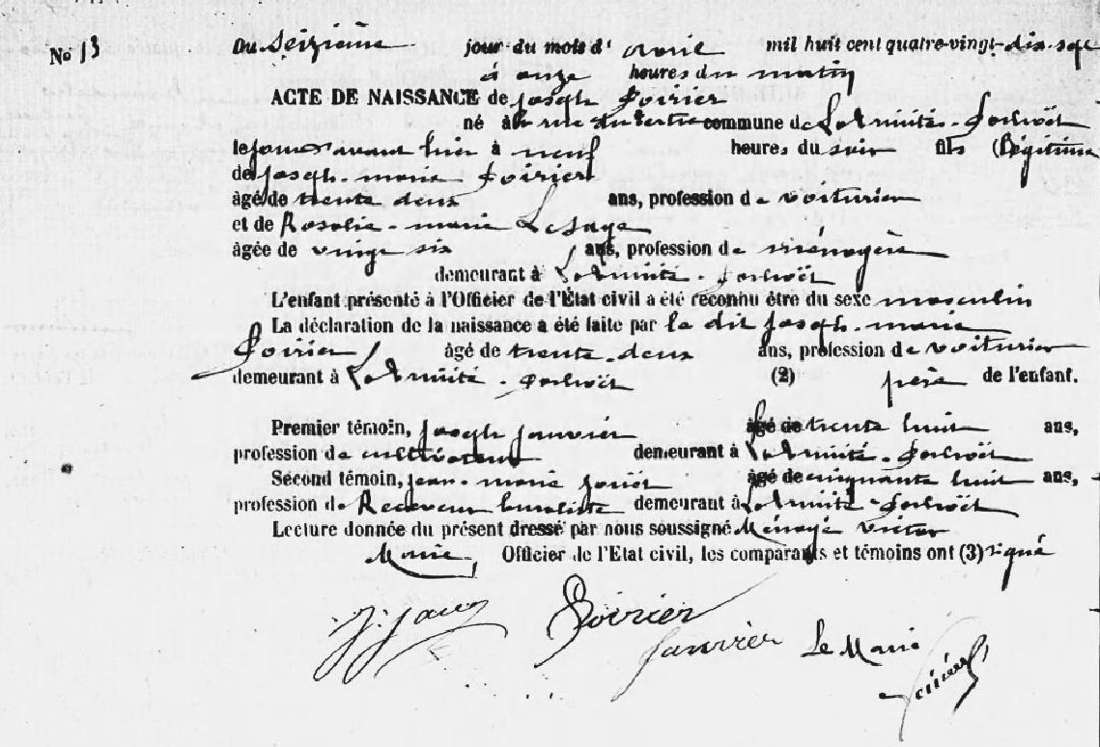 No 13
Du Seizième jour du mois d' avril mil huit cent quatre-vingt-dix-sept
à onze heures du matin
ACTE DE NAISSANCE de Joseph Poirier
né à la rue du tertre commune de La Trinité-Porhoët
le jour avant hier à neuf heures du soir fils (Légitime
de Joseph-marie Poirier
âgé de trente deux ans, profession de voiturier
et de Rosalie-marie Lesage
âgée de vingt six ans, profession de ménagère
demeurant à La trinité-Porhoët
L'enfant présenté à l'Officier de l'État civil a été reconnu être du sexe masculin
La déclaration de la naissance a été faite par le dit Joseph-marie
Poirier âgé de trente-deux ans, profession de voiturier
demeurant à La trinité-Porhoët (2) père de l'enfant.
Premier témoin, Joseph Janvier âgé de trente huit ans,
profession de cultivateur demeurant à La trinité-Porhoët
Second témoin, jean-marie âgé de cinquante huit ans,
profession de Receveur buraliste demeurant à La trinité-Porhoët
Lecture donnée du présent dressé par nous soussigné Victor
Maire, Officier de l'État civil, les comparants et témoins ont (3) signé
Poirier
Janvier Le Maire